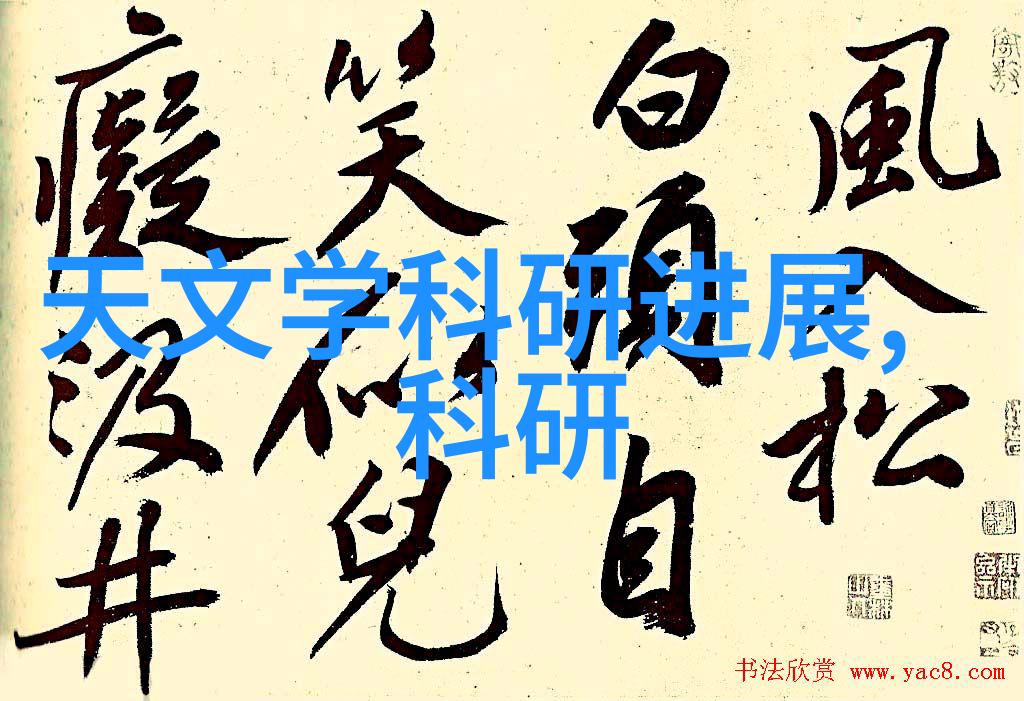 風入松
白頭自
笑似兒
癡汲井
天文学科研进展,
科研
书法欣赏 www.yac8.com